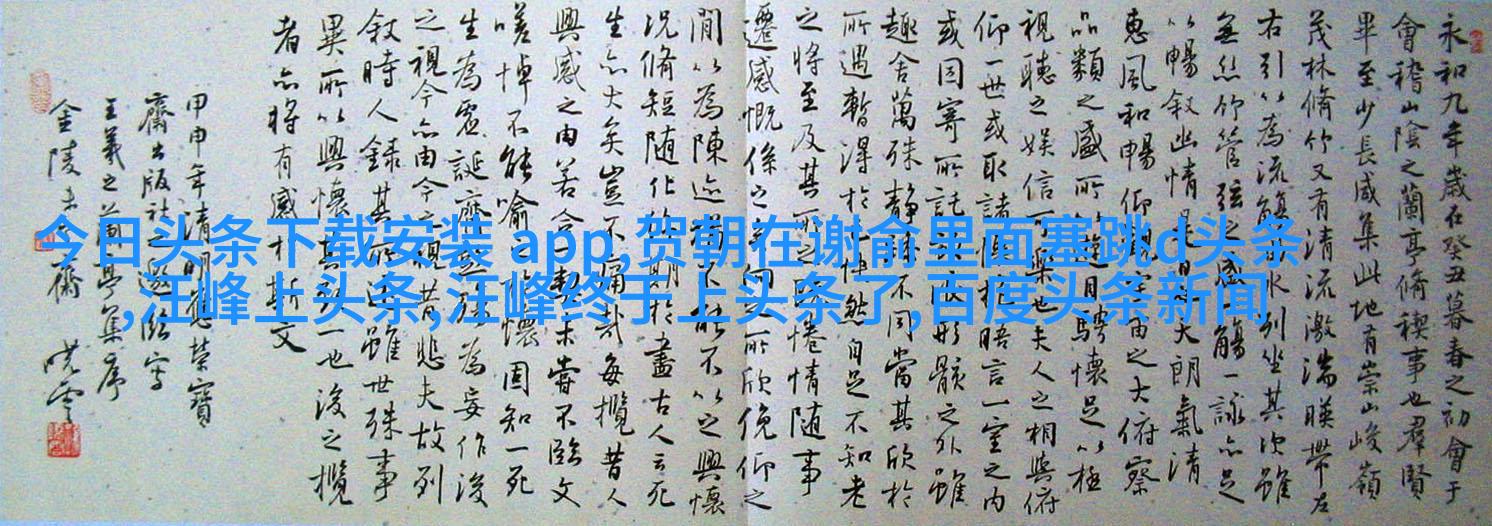 永和九年歲在癸丑暮春之初會于
會稽山陰之蘭亭脩稧事也羣賢
畢至少長咸集此地有崇山峻嶺
茂林脩竹又有清流激湍暎帶左
右引以為流觴曲水列坐其次雖
無絲竹管弦之盛一觴一詠亦足
以暢敘幽情是日也天朗氣清
惠風和暢仰觀宇宙之大俯察
品類之盛所以遊目騁懷足以極
視聽之娛信可樂也夫人之相與俯
仰一世或取諸懷抱晤言一室之內
或因寄所託放浪形骸之外雖
趣舍萬殊靜躁不同當其欣於
所遇暫得於己怏然自足不知老
之將至及其所之既惓情隨事
遷感慨係之矣向之所欣俛仰之
間以為陳迹猶不能不以之興懷
況脩短隨化終期於盡古人云死
生亦大矣豈不痛哉每攬昔人
興感之由若合一契未嘗不臨文
嗟悼不能喻之於懷固知一死
生為虛誕齊彭殤為妄作後
之視今亦由今之視昔悲夫故列
敘時人錄其所述雖世殊事
異所以興懷其致一也後之攬
者亦將有感於斯文
甲申年清明應榮寶
齋出版社之邀臨寫
王羲之蘭亭集序
金陵齋
今日头条下载安装 app,贺朝在谢俞里面塞跳d头条
,汪峰上头条,汪峰终于上头条了,百度头条新闻